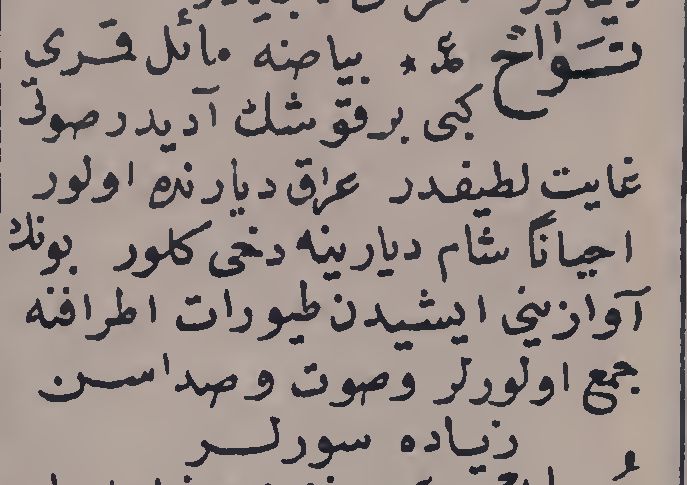 تنواخ * بياضنه مائل قمرى
كبى بر قوشك آديدر صوتى
غايت لطيفدر عراق ديارنده اولور
احياناً شام ديارينه دخى كلور بونك
آوازينى ايشيدن طيورات اطرافنه
جمع اولورلر وصوت وصداسن
زياده سورلر